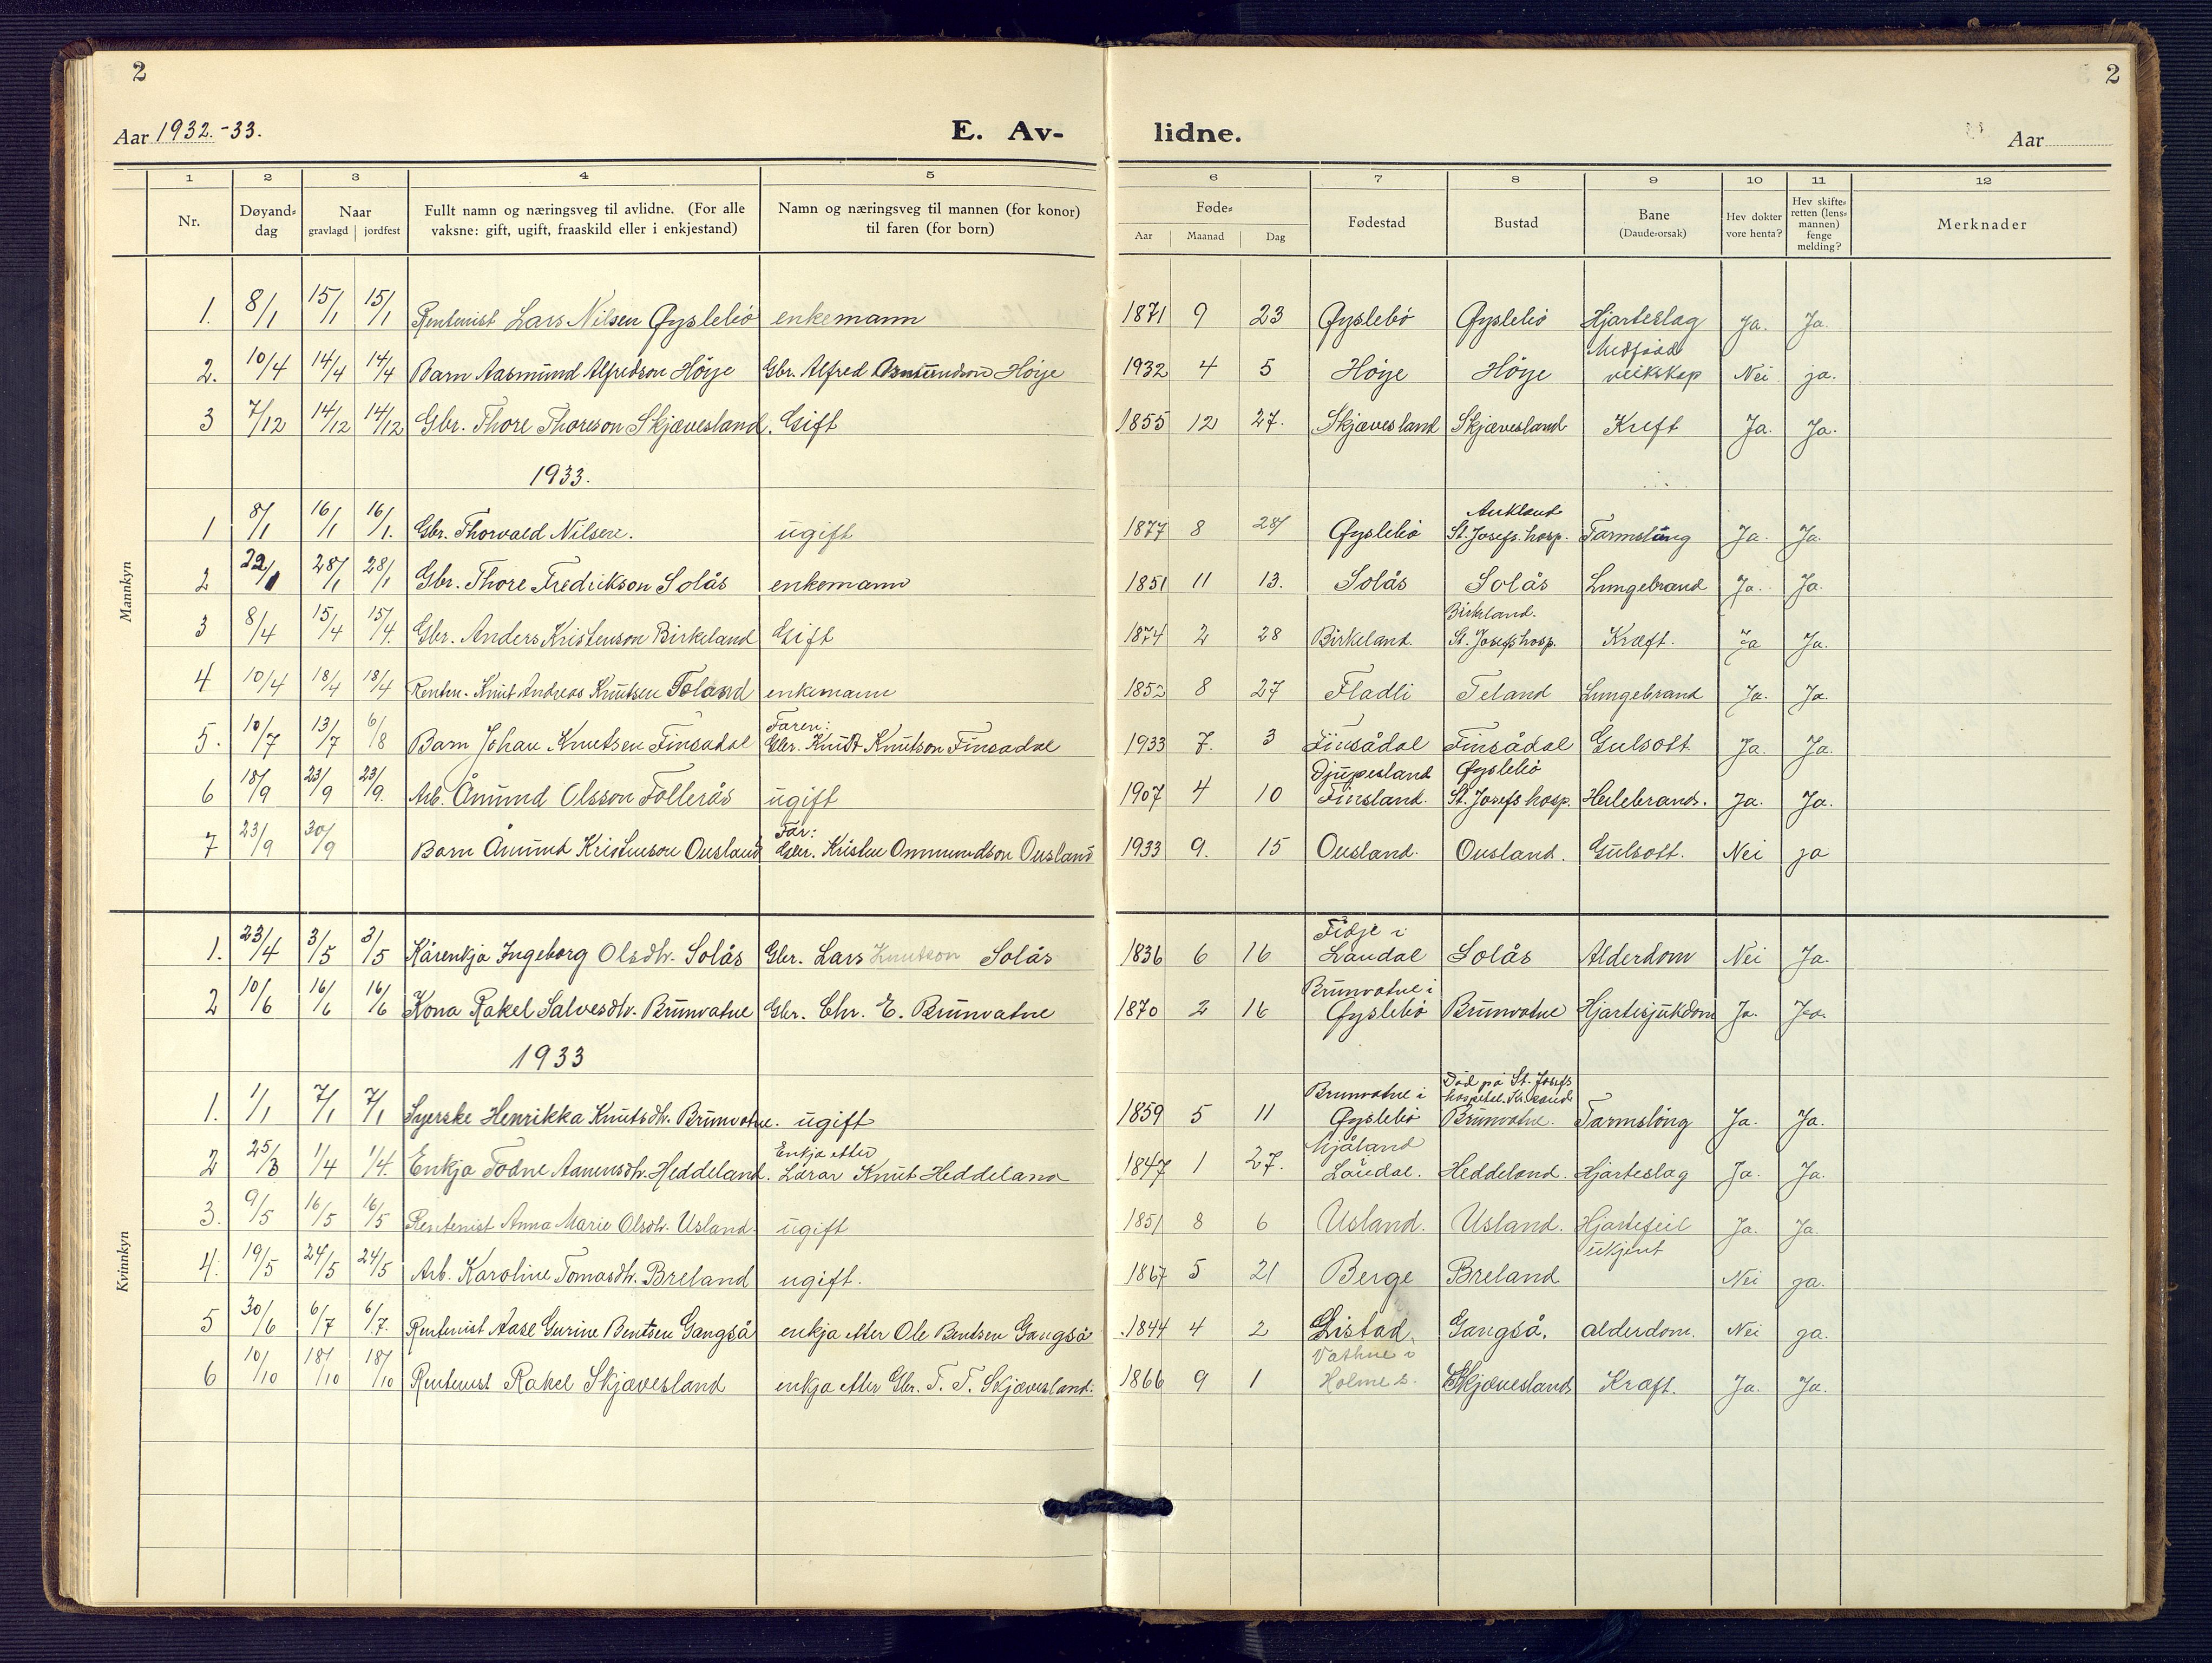 2
2
Aar 1932.-33.
E. Av-
lidne.
Aar
1 2 3 4 5 6 7 8 9 10 11 12
Nr.
Døyand-
dag
Naar
gravlagd jordfest
Fullt namn og næringsveg til avlidne. (For alle
vaksne: gift, ugift, fraaskild eller i enkjestand)
Namn og næringsveg til mannen (for konor)
til faren (for born)
Føde-
Aar Maanad Dag
Fødestad
Bustad
Bane
(Daude-orsak)
Hev dokter
vore henta?
Hev skifte-
retten (lens-
mannen)
fenge
melding?
Merknader
Mannkyn
1. 8/1 15/1 15/1 Rentenist Lars Nilsen Øyslebö enkemann 1871 9 23 Øyslebö Øyslebö Hjarteslag Ja. Ja.
Medfödd
2. 10/4 14/4 14/4 Barn Aasmund Alfredson Höye Gbr. Alfred Asmundson Höye 1932 4 5 Höye Höye veikskap Nei ja.
3 7/12 14/12 14/12 Gbr. Thore Thoreson Skjævesland. Gift 1855 12 27. Skjævesland Skjævesland Kreft Ja. Ja.
1933.
Aukland
1 8/1 16/1 16/1. Gbr. Thorvald Nilsen. ugift 1877 8 28/ Øyslebö St. Josefs hosp. Tarmslyng Ja. Ja.
2 22/1 28/1 28/1 Gbr. Thore Fredrikson Solås enkemann 1851 11 13. Solås Solås Lungebrand Ja. Ja.
Birkeland.
3 8/4 15/4 15/4. Gbr. Anders Kristenson Birkeland Gift 1874 2 28 Birkeland. St. Josefs hosp. Kræft. Ja Ja.
4 10/4 18/4 18/4 Renten. Knut Andreas Knutsen Teland enkemann 1852 8 27 Fladli Teland Lungebrand Ja. Ja.
Faren:
5. 10/7 13/7 6/8 Barn Johan Knutsen Finsadal Gbr. Knut Knutson Finsadal 1933 7. 3 Finsådal Finsådal Gulsott Ja. Ja.
Djupesland Øyslebö
6 18/9 23/9 23/9. Arb. Åmund Olsson Follerås ugift 1907 4 10 Finsland. St. Josefs hosp. Heilebrand. Ja. Ja.
Far:
7 23/9 30/9 Barn Åmund Kristenson Ousland Gbr. Kristen Ommundson Ousland 1933 9. 15 Ousland. Ousland. Gulsott. Nei ja
Kvinnkyn
Fidje i
1. 23/4 3/5 3/5 Kårenkja Ingeborg Olsdtr. Solås Gbr. Lars Knutson Solås 1836 6 16 Laudal Solås Alderdom Nei Ja.
Brunvatne i
2 10/6 16/6 16/6 Kona Rakel Salvesdtr. Brunvatne Gbr. Chr. E. Brunvatne 1870 2 16 Øyslebö Brunvatne Hjartesjukdom Ja. Ja.
1933
Brunvatne i Död på St. Josefs
hospital. Kr.sand
1. 1/1 7/1 7/1 Syerske Henrikka Knutsdtr. Brunvatne. ugift 1859 5 11 Øyslebö Brunvatne. Tarmslöng Ja. Ja.
Enkja etter Mjåland
2 25/3 1/4 1/4. Enkja Todne Aanensdtr. Heddeland. Lærar Knut Heddeland 1847 1 27. Laudal. Heddeland. Hjarteslag Ja. Ja.
3. 9/5 16/5 16/5 Rentenist Anna Marie Olsdtr. Usland. ugift 1851 8 6 Usland. Usland. Hjartefeil Ja. Ja
ukjent
4. 19/5 24/5 24/5 Arb. Karoline Tomasdtr. Breland ugift. 1867 5 21 Berge Breland Nei ja.
5 30/6 6/7 6/7. Rentenist Aase Gurine Bentsen Gangså enkja etter Ole Bentsen Gangså 1844 4 2 Listad. Gangså. alderdom. Nei ja.
Vathne i
6 10/10 18/10 18/10 Rentenist Rakel Skjævesland enkja etter Gbr. T. T. Skjævesland. 1866 9 1 Holme s. Skjævesland Kræft. Ja. Ja.